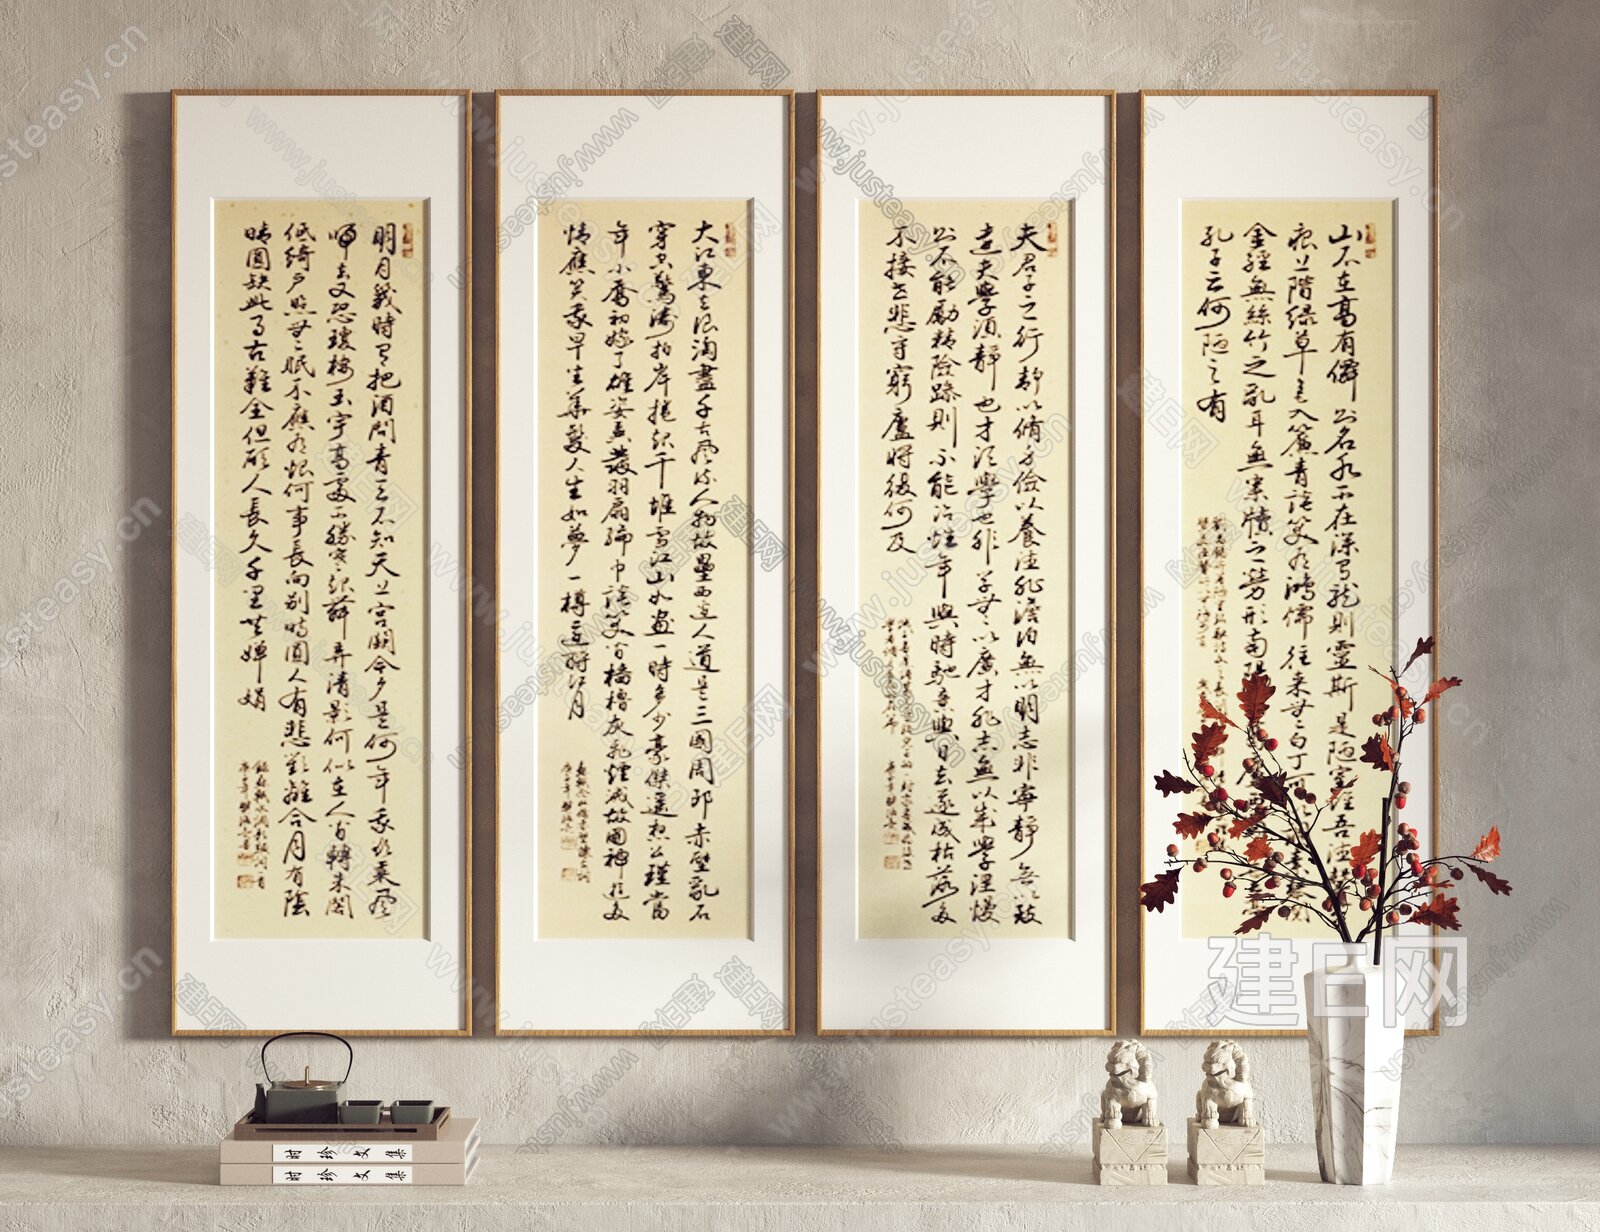 山不在高有僊則名水不在深有龍則靈斯是陋室惟吾德馨
痕上階綠草色入簾青談笑有鴻儒往來無白丁可以調素琴閱
金經無絲竹之亂耳無案牘之勞形南陽
孔子云何陋之有
夫君子之行靜以脩身儉以養德非澹泊無以明志非寧靜無以致
遠夫學須靜也才須學也非學無以廣才非志無以成學淫慢
則不能勵精險躁則不能冶性年與時馳意與日去遂成枯落多
不接世悲守窮廬將復何及
大江東去浪淘盡千古風流人物故壘西邊人道是三國周郎赤壁亂石
穿空驚濤拍岸捲起千堆雪江山如畫一時多少豪傑遙想公瑾當
年小喬初嫁了雄姿英發羽扇綸巾談笑間檣櫓灰飛煙滅故國神遊多
情應笑我早生華髮人生如夢一樽還酹江月
明月幾時有把酒問青天不知天上宮闕今夕是何年我欲乘風
歸去又恐瓊樓玉宇高處不勝寒起舞弄清影何似在人間轉朱閣
低綺戶照無眠不應有恨何事長向別時圓人有悲歡離合月有陰
晴圓缺此事古難全但願人長久千里共嬋娟
时珍文集
时珍文集
建E网
www.justeasy.cn